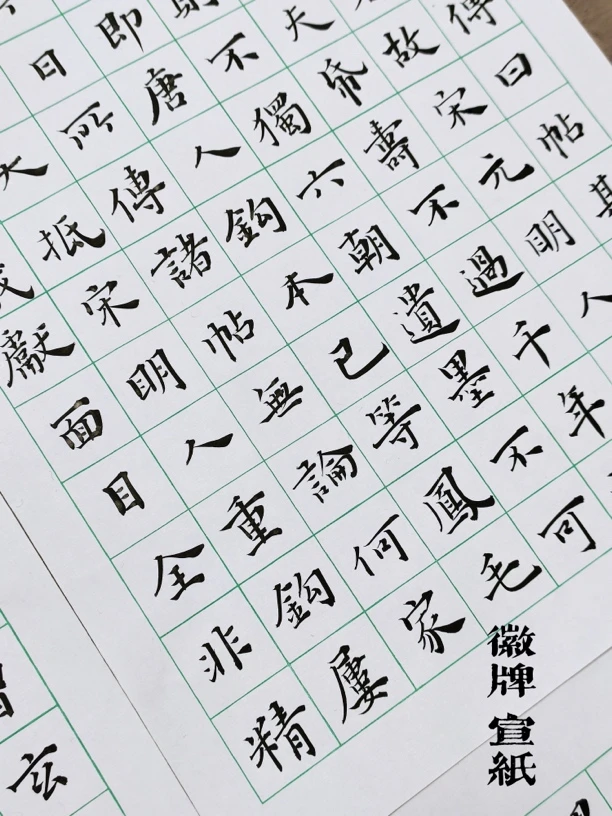 傳曰帖
故宋元明人
夫帋壽不過千年
不獨六朝遺墨不可
即唐人鈎本已等鳳毛
日所傳諸帖無論何家
大抵宋明人重鈎屢
獻面目全非精
玄
徽牌 宣紙